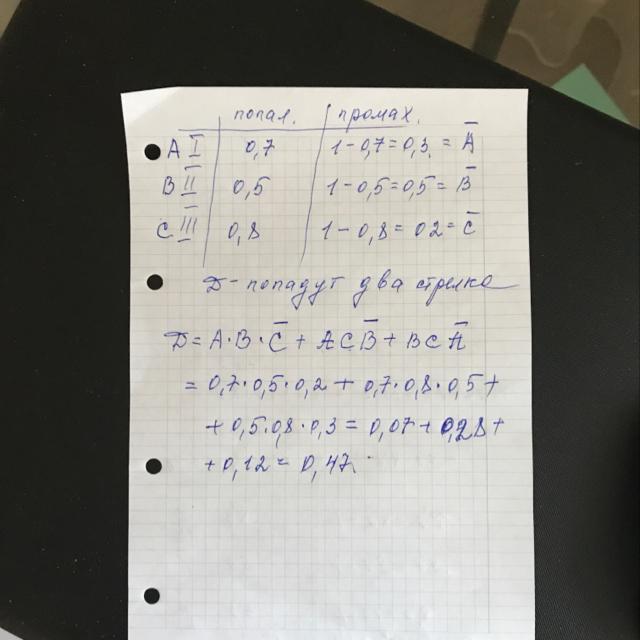 попад. промах.
A I 0,7 1-0,7=0,3 = A̅
B II 0,5 1-0,5=0,5= B̅
C III 0,8 1-0,8= 02= C̅
D-попадут два стрелка
D= A·B·C̅ + ACB̅ + BCA̅
= 0,7·0,5·0,2 + 0,7·0,8·0,5+
+ 0,5·0,8·0,3 = 0,07+0,28+
+0,12= 0,47.